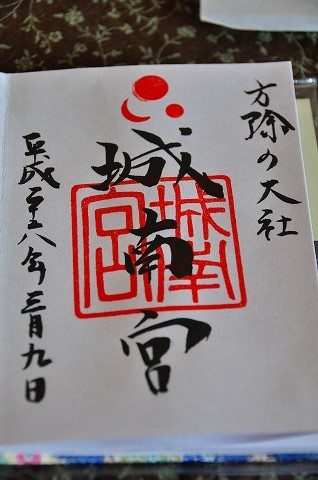 方除の大社
城南宮
城南宮
平成二十八年三月九日